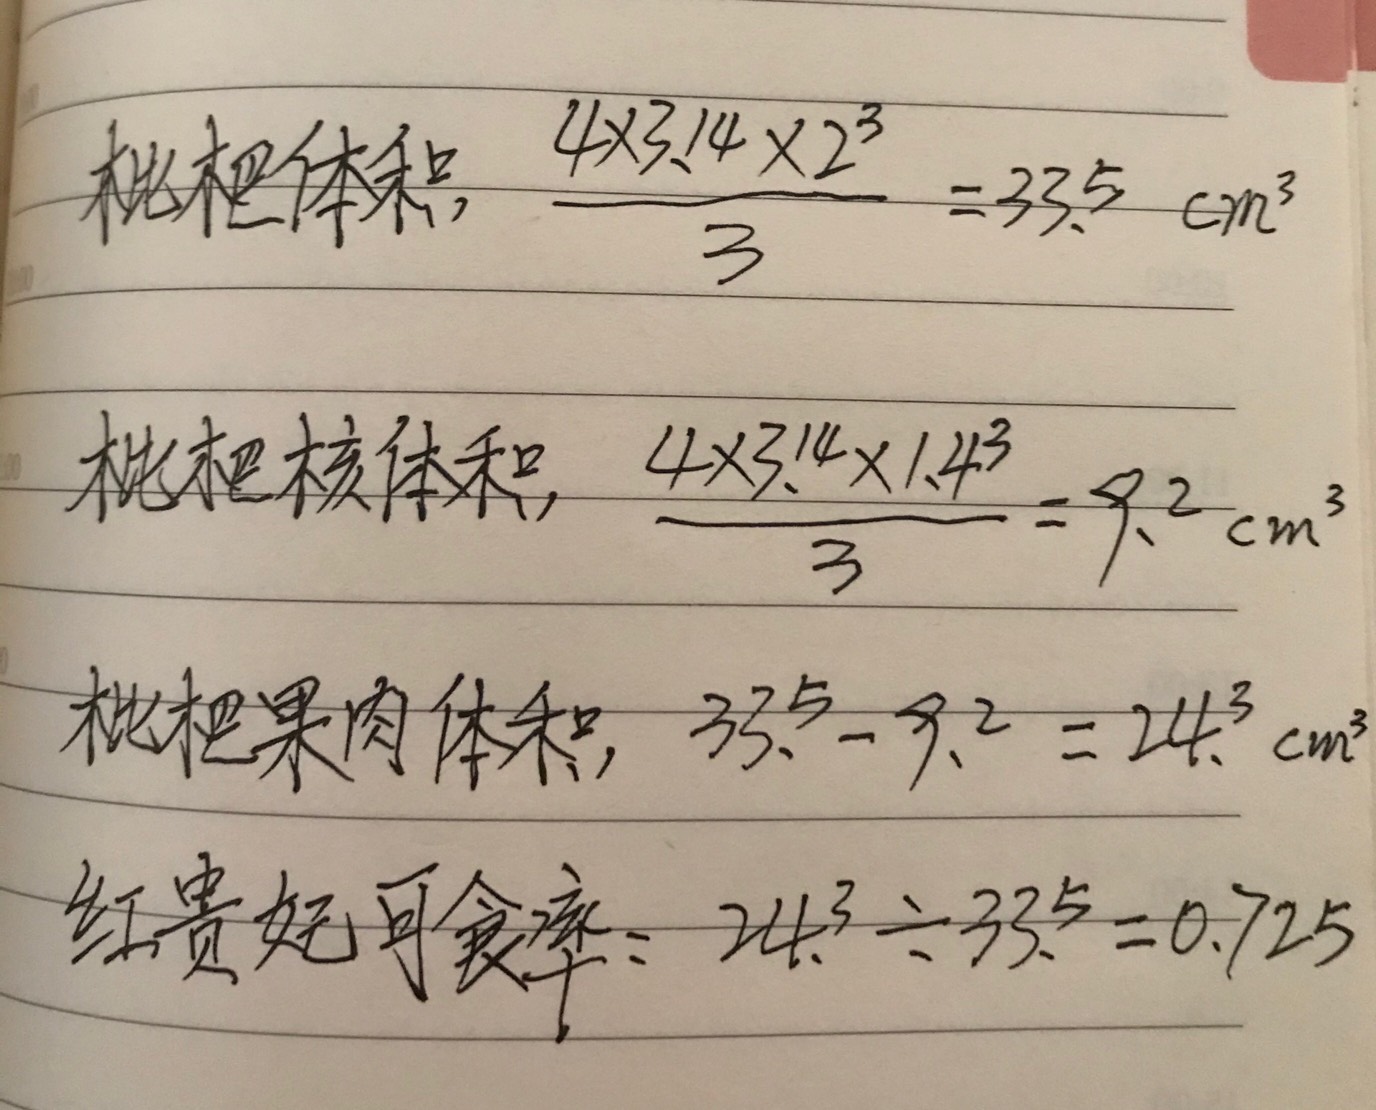 枇杷体积, 4×3.14×2³/3 =33.5 cm³
枇杷核体积, 4×3.14×1.4³/3 = 9.2 cm³
枇杷果肉体积, 33.5-9.2 = 24.3 cm³
红贵妃可食率: 24.3÷33.5=0.725